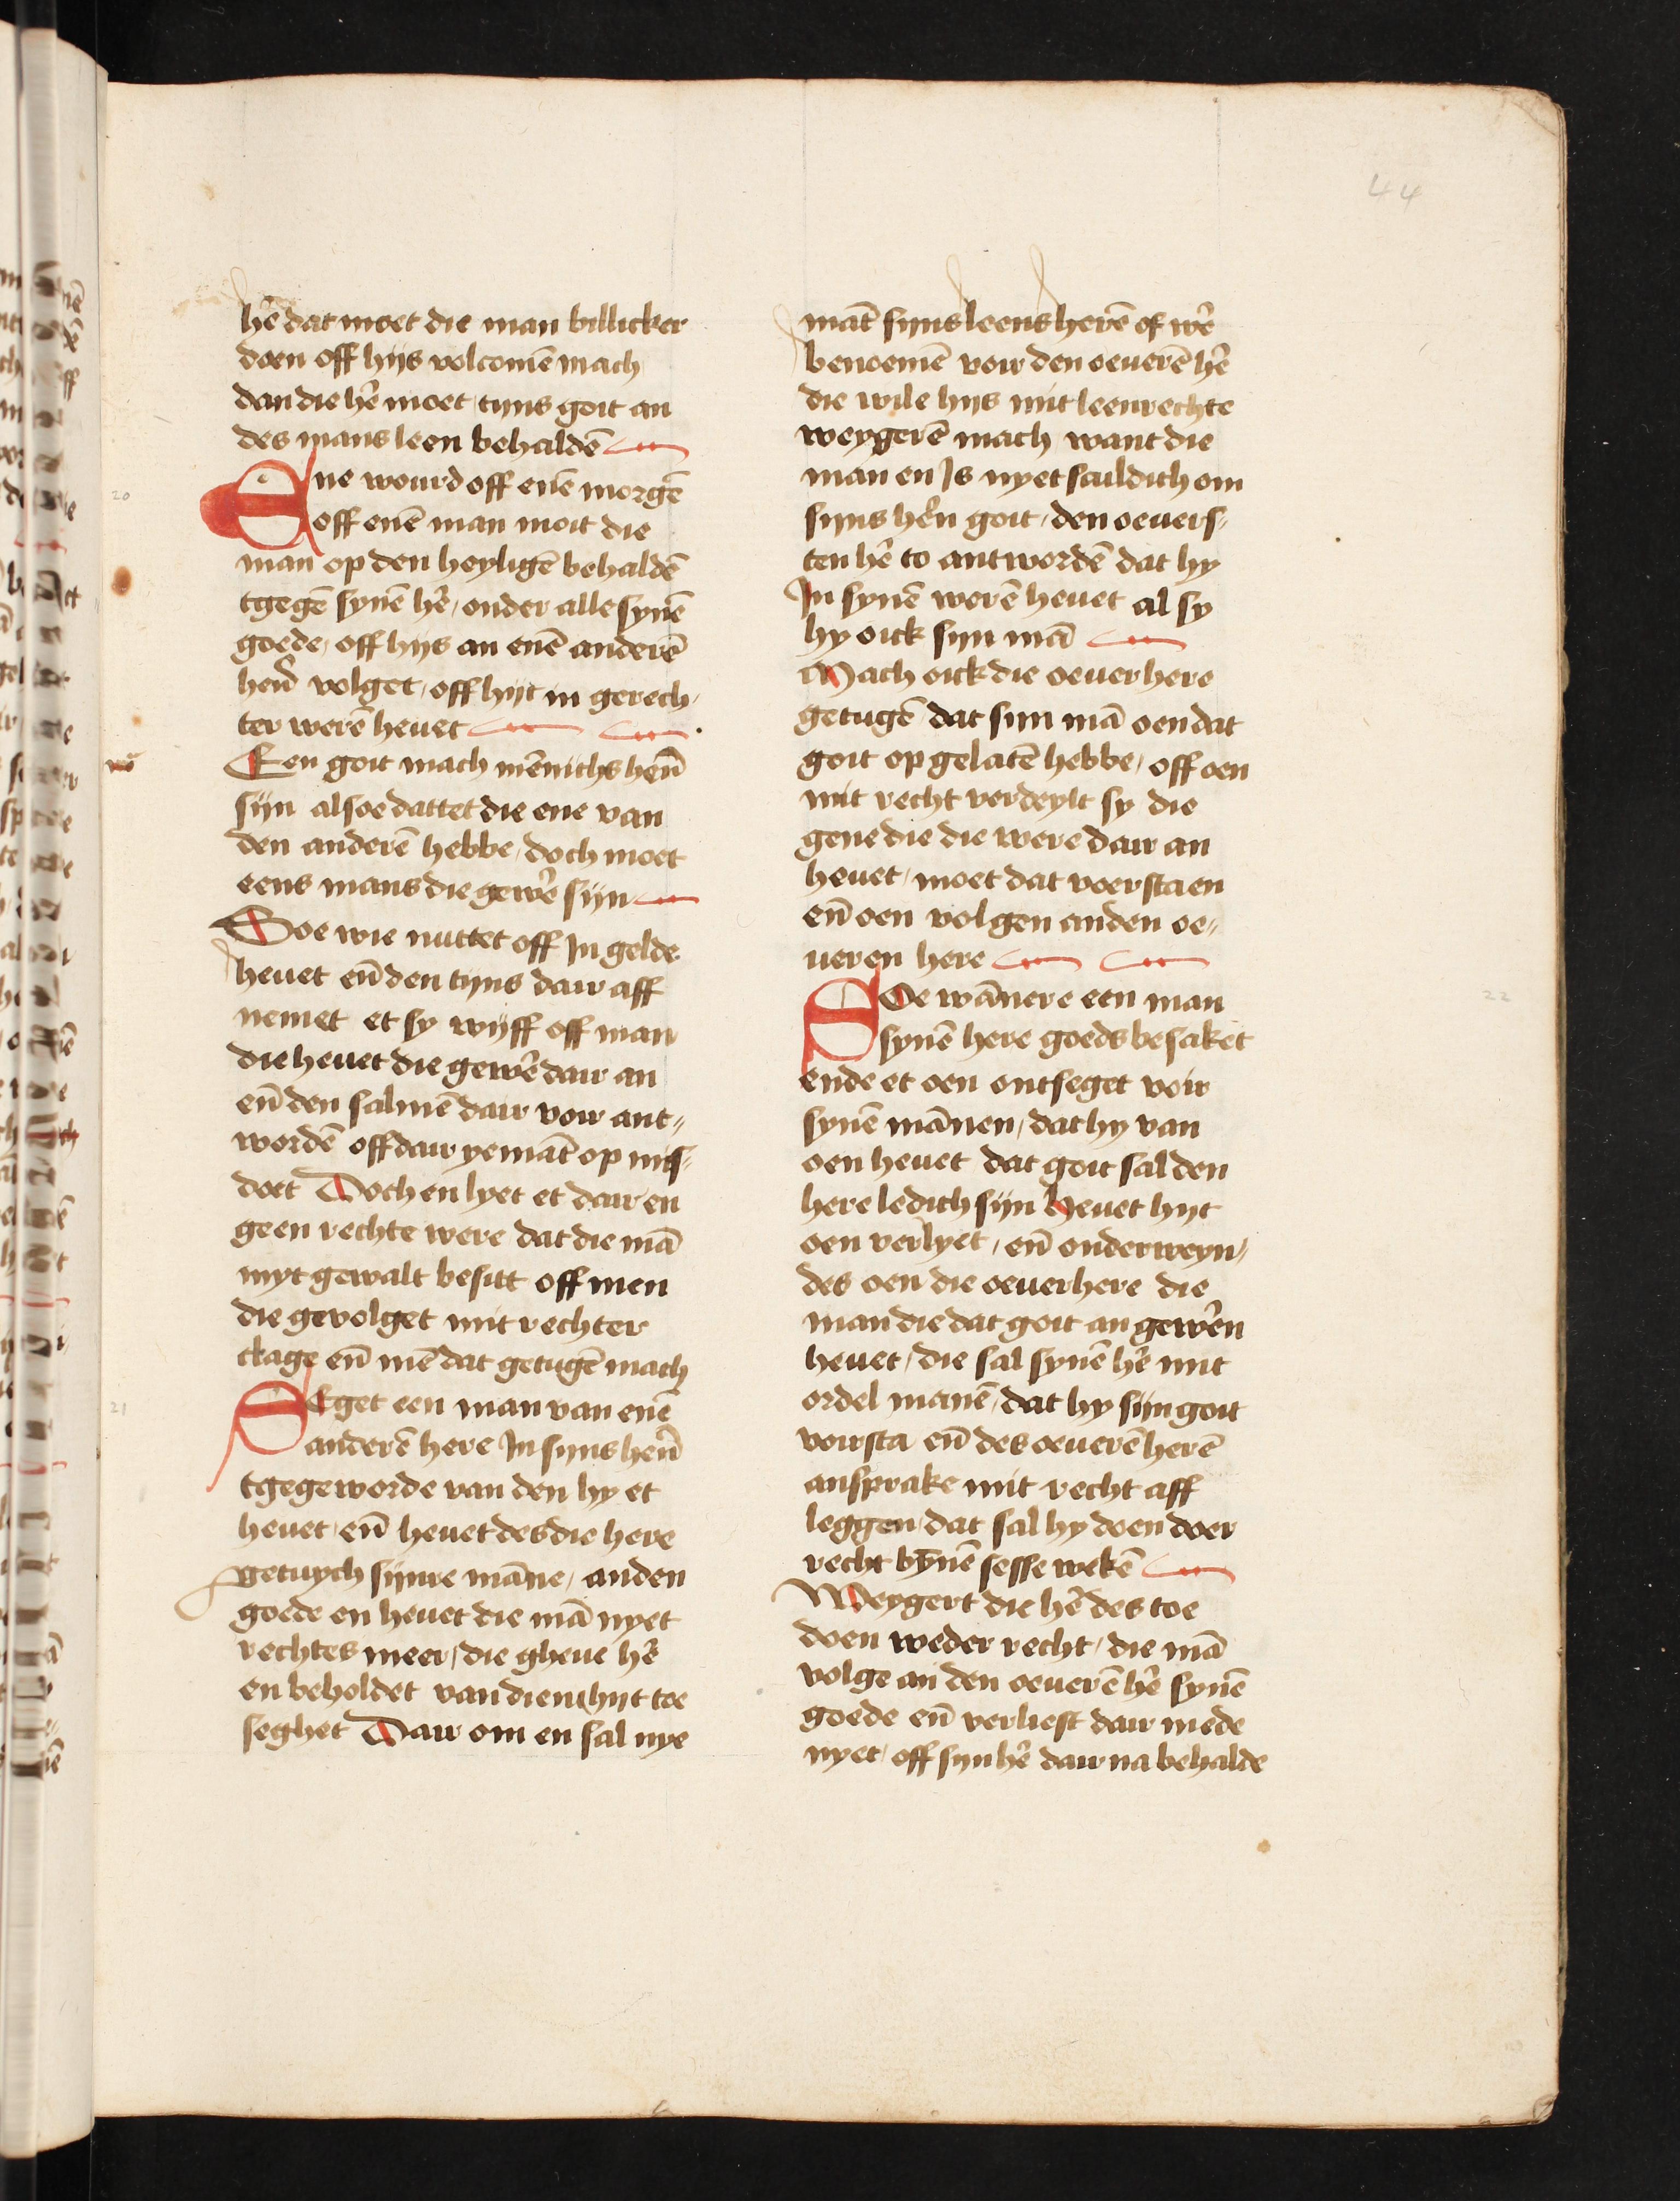 44
hē dat moet die man billicker
doen off hijs volcomē mach
dan die hē moet tijns goit an
des mans leen behaldē
20
Ene wourd off enē morgē
off enē man moit die
man op den heyligē behaldē
tgegē synē hē / onder alle synē
goede / off hijs an enē anderē
hern̄ volget / off hijt in gerech-
ter werē heuet
Een goit mach mēnichs hern̄
sijn alsoe dattet die ene van
den anderē hebbe / doch moet
eens mans die gewē sijn
Soe wie nuttet off In gelde
heuet en̄ den tijns dair aff
nemet et sy wijff off man
die heuet die gewē dair an
en̄ den salmē dair voir ant-
wordē off dair yemāt op mis-
doet Doch en lyet et dair en
geen rechte were dat die mā
myt gewalt besitt off men
die gevolget mit rechter
clage en̄ mē dat getugē mach
21
Seget een man van enē
anderē here In sijns hern̄
tgegeworde van den hy et
heuet / en̄ heuet des die here
getuych sijnre māne / anden
goede en heuet die mā nyet
rechtes meer / die gheue hē
en beholdet van dien hijt toe
seghet Dair om en sal nye
māt sijns leens herē of wē
benoemē voir den oeuerē hē
die wile hijs mit leenrechte
weygerē mach want die
man en Is nyet sculdich om
sijns hērn goit / den oeuers-
ten hē to antwordē dat hy
In synē werē heuet al sy
hy oick sijn mā
Mach oick die oeuerhere
getugē dat sijn mā oen dat
goit op gelatē hebbe / off oen
mit recht verdeylt sy die
gene die die were dair an
heuet / moet dat voerstaen
en̄ oen volgen anden oe-
ueren here
22
Soe wānere een man
synē here goeds besaket
ende et oen ontseget voir
synē mānen / dat hy van
oen heuet dat goit sal den
here ledich sijn Heuet hijt
oen verlyet / en̄ onderweyn-
des oen die oeuerhere die
man die dat goit an gewērn
heuet / die sal synē hē mit
ordel manē / dat hy sijn goit
voirsta en̄ des oeuerē herē
ansprake mit recht aff
leggen / dat sal hy doen doer
recht bȳnē sesse wekē
Weygert die hē des toe
doen weder recht / die mā
volge an den oeuerē hē synē
goede en̄ verliest dair mede
nyet / off sijn hē dair na behalde